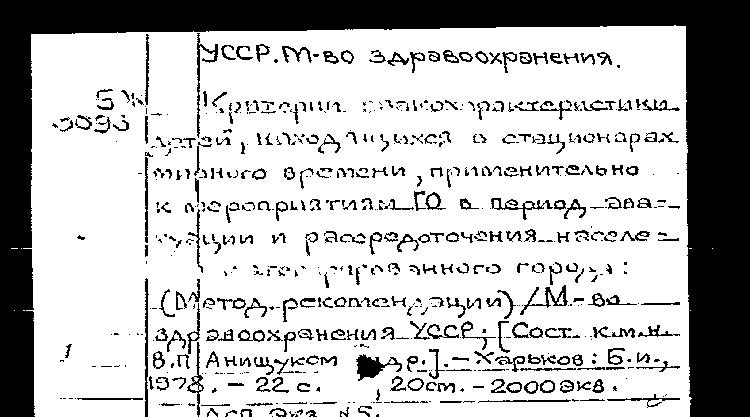 УССР. М-во здравоохранения.
5Ж
Критерии
детей, находящихся в стационарах
мирного времени, применительно
к мероприятиям ГО в период эва-
куации и рассредоточения населе-
города:
(Метод. рекомендации) / М-во
здравоохранения УССР; [Сост. к.м.н.
1
В.П. Анищуком и др.]. - Харьков: Б.и.,
1978. - 22 с. , 20см. - 2000 экз.
экз. №5.